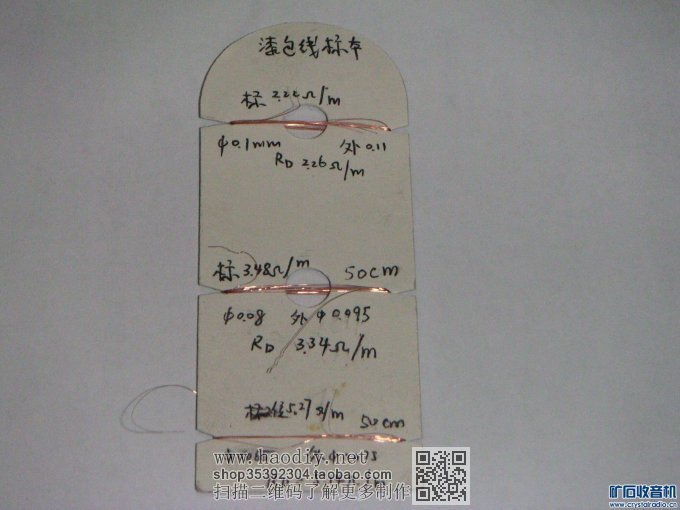 漆包线标本
标 2.22Ω/m
φ0.1mm 外 0.11
RD 2.26Ω/m
标 3.48Ω/m 50cm
φ0.08 外 φ0.095
RD 3.34Ω/m
5.27Ω/m 50cm
www.haodiy.net
shop35392304.taobao.com
扫描二维码了解更多制作
矿石收音机
www.crystalradio.cn